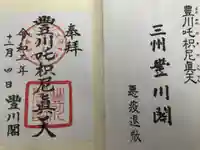 豊川吒枳尼真天
三州 豊川閣
悪疫退散
奉拝
豊川吒枳尼真天
令和二年
十二月四日
豊川閣